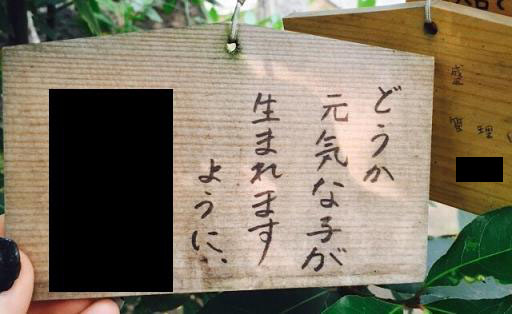 どうか
元気な子が
生まれます
ように‥
管理